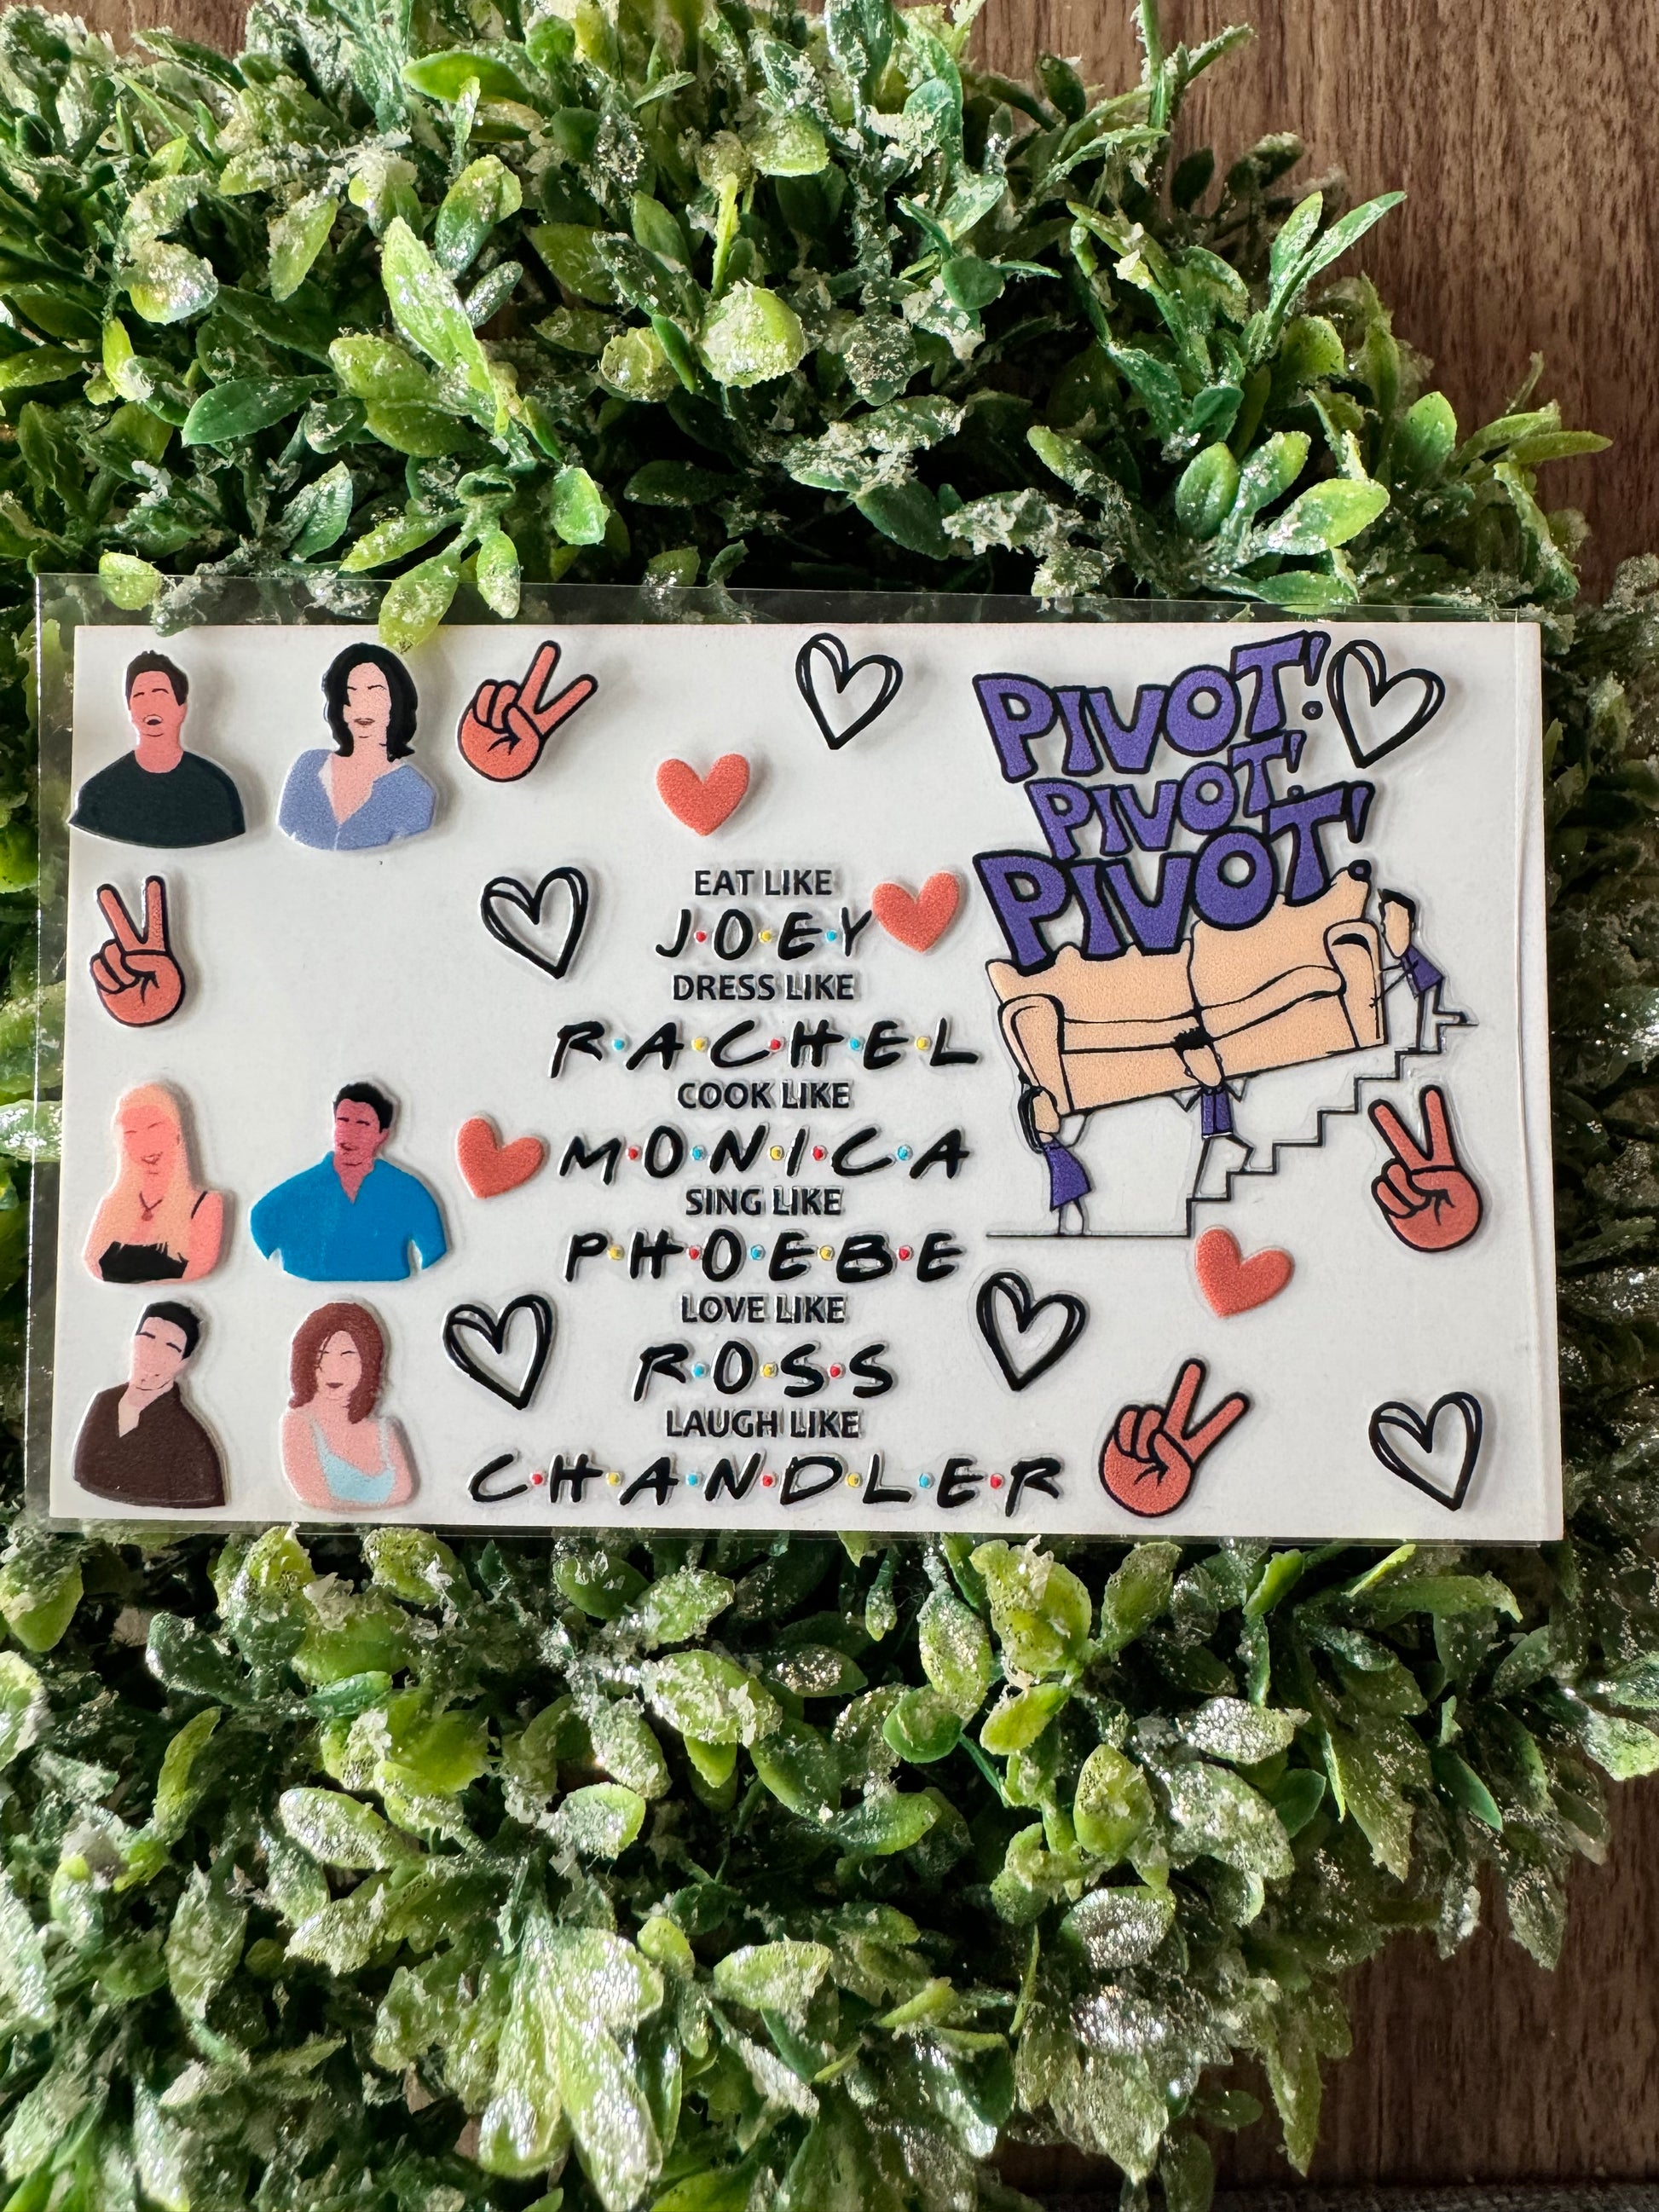 PIVOT!
PIVOT!
PIVOT!
EAT LIKE
J·O·E·Y
DRESS LIKE
R·A·C·H·E·L
COOK LIKE
M·O·N·I·C·A
SING LIKE
P·H·O·E·B·E
LOVE LIKE
R·O·S·S
LAUGH LIKE
C·H·A·N·D·L·E·R